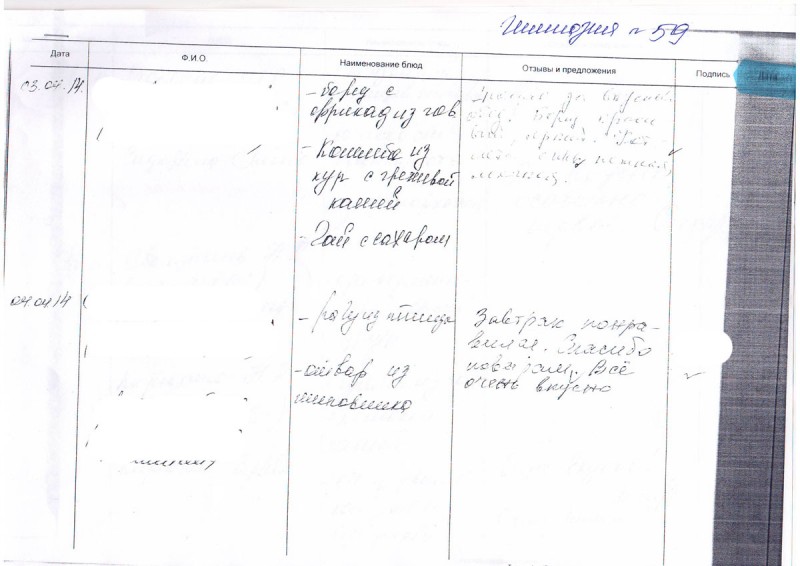 Гимназия № 59
Дата
Ф.И.О.
Наименование блюд
Отзывы и предложения
Подпись
03.04.14
- борщ с
фрикад из гов
- Котлета из
кур с гречневой
кашей
- Чай с сахаром
04.04.14
- рагу из птицы
- отвар из
шиповника
Завтрак понра-
вился. Спасибо
поварам. Всё
очень вкусно